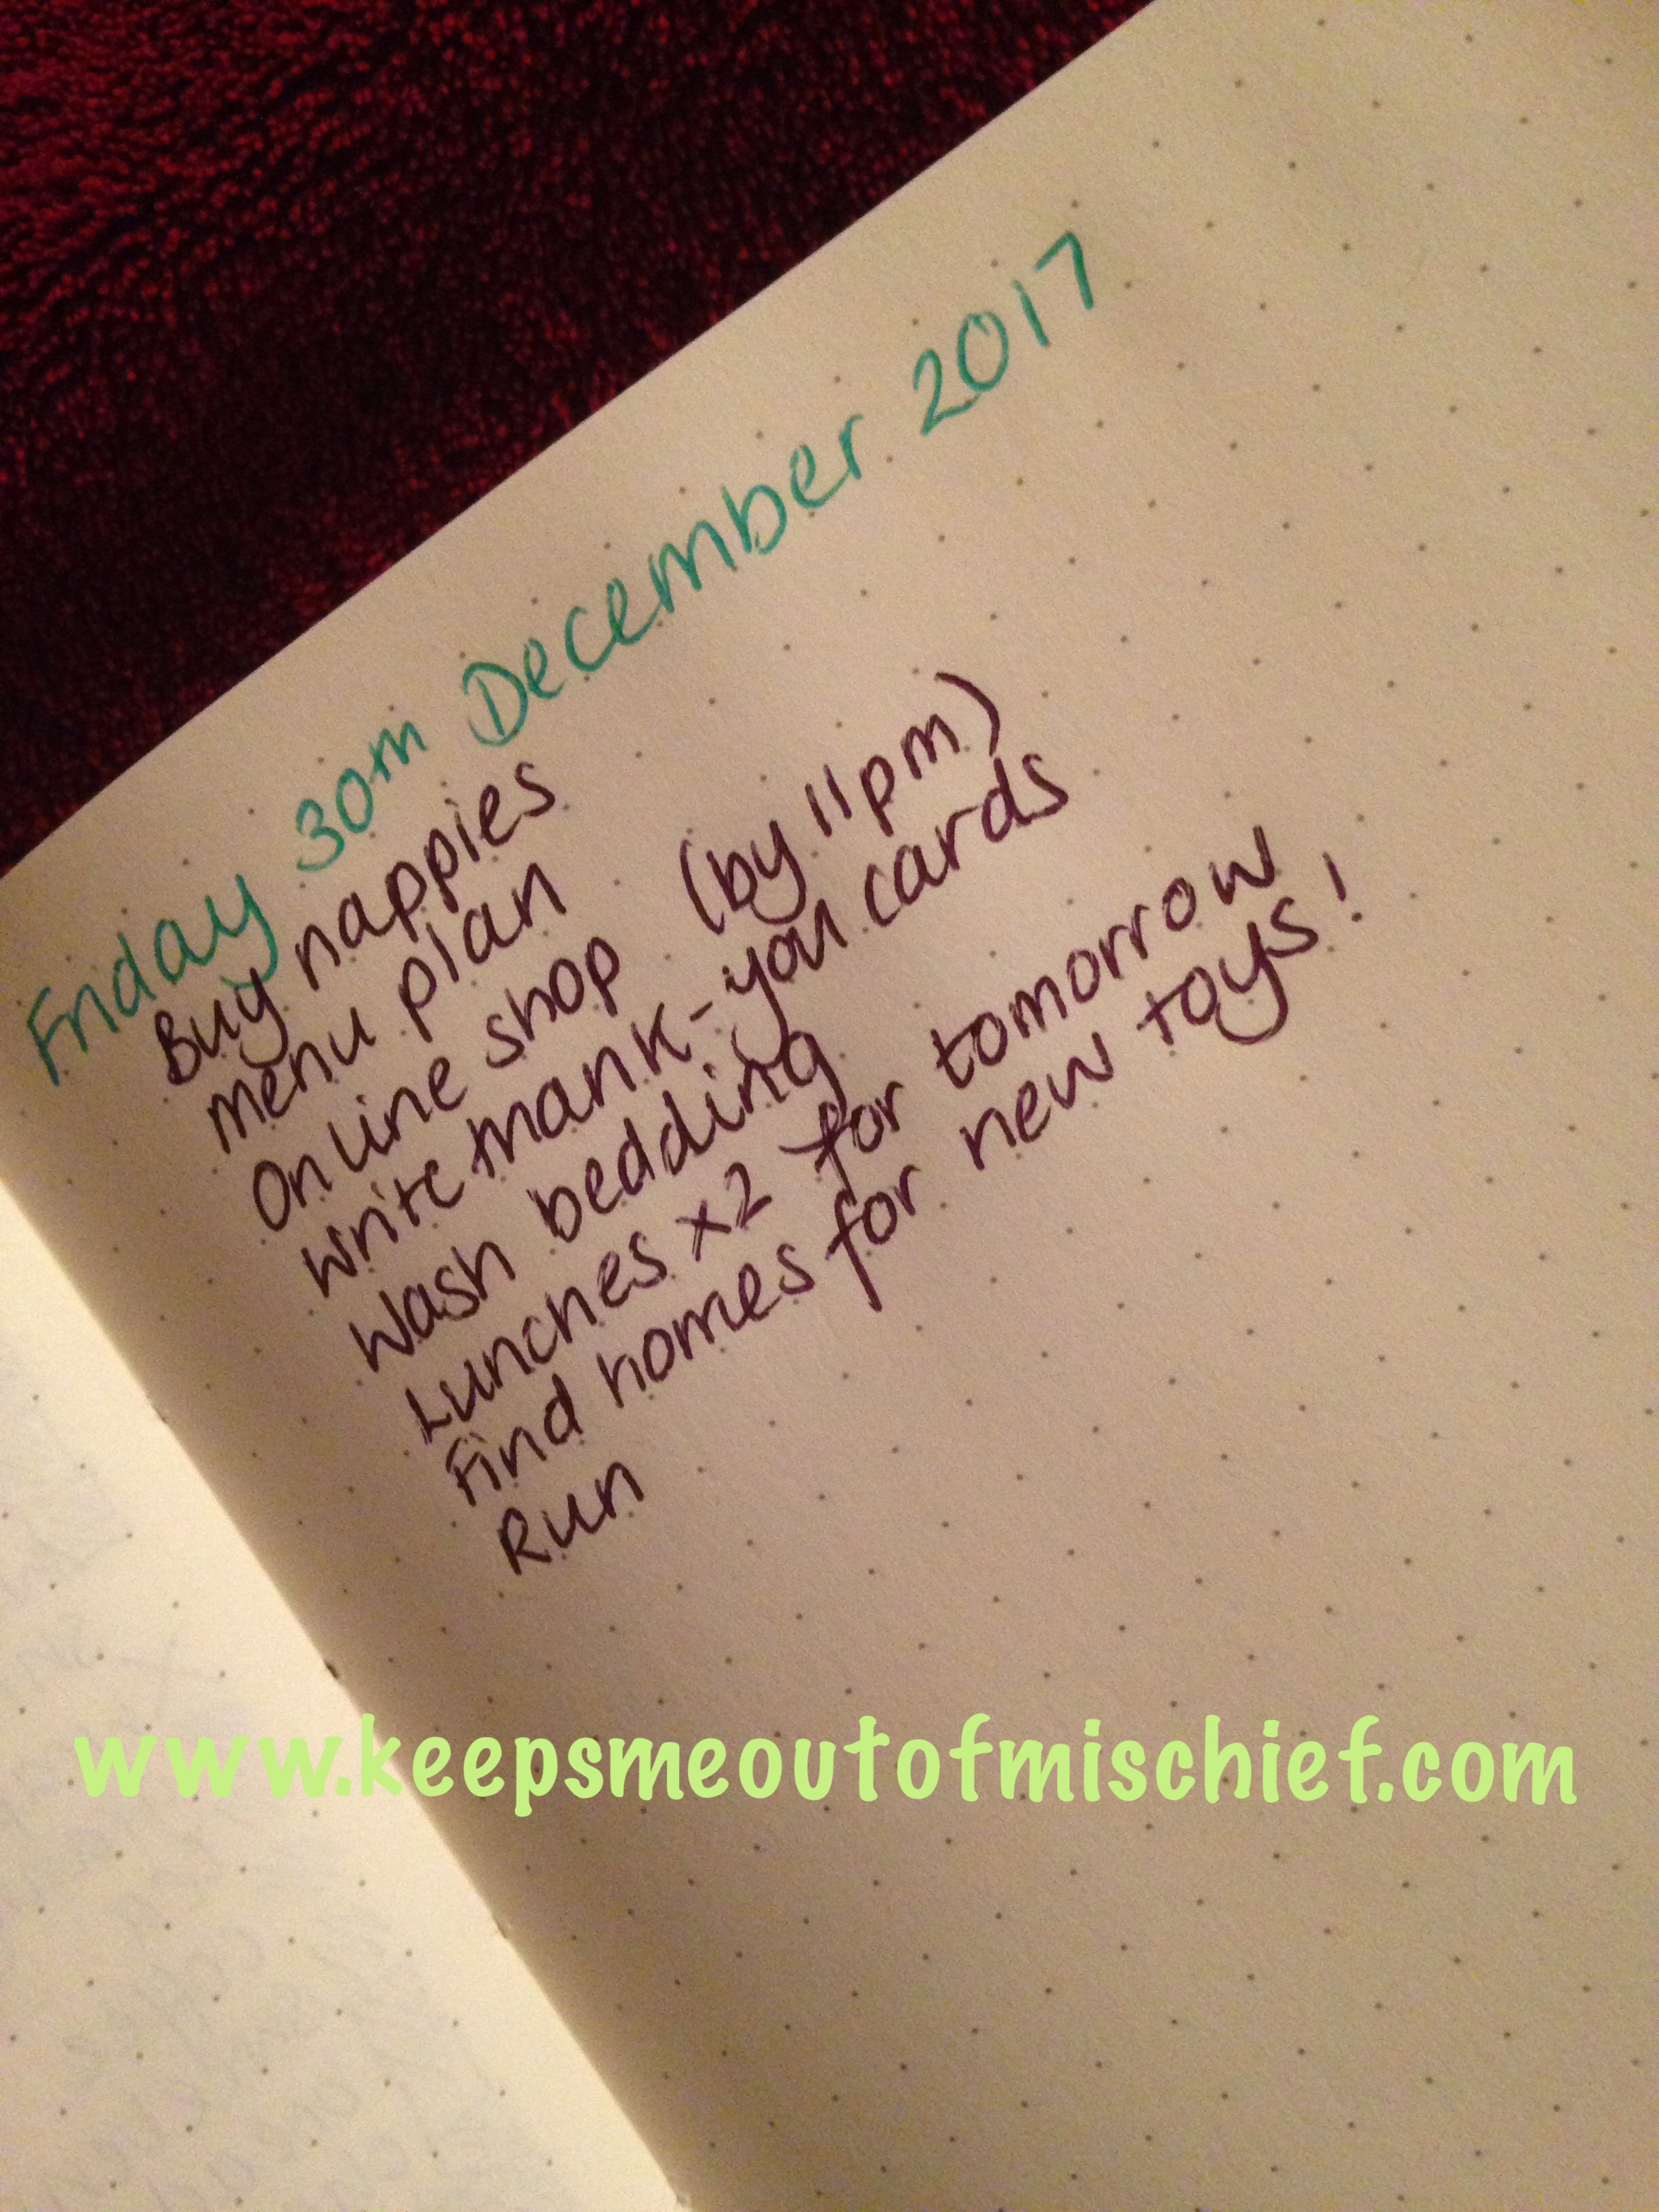 Friday 30th December 2017
Buy nappies
Menu plan
Online shop (by 11pm)
Write thank-you cards
Wash bedding
Lunches x2 for tomorrow
Find homes for new toys!
Run
www.keepsmeoutofmischief.com